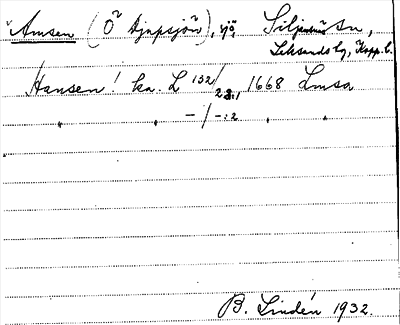 "Amsen (Ö Djupsjön), sjö Siljansnäs sn,
Leksands tg, Kopp. l.
Hansen! ka. L 132/23:1 1668 Lmsa
" " -/-:2 " "
B. Lindén 1932.